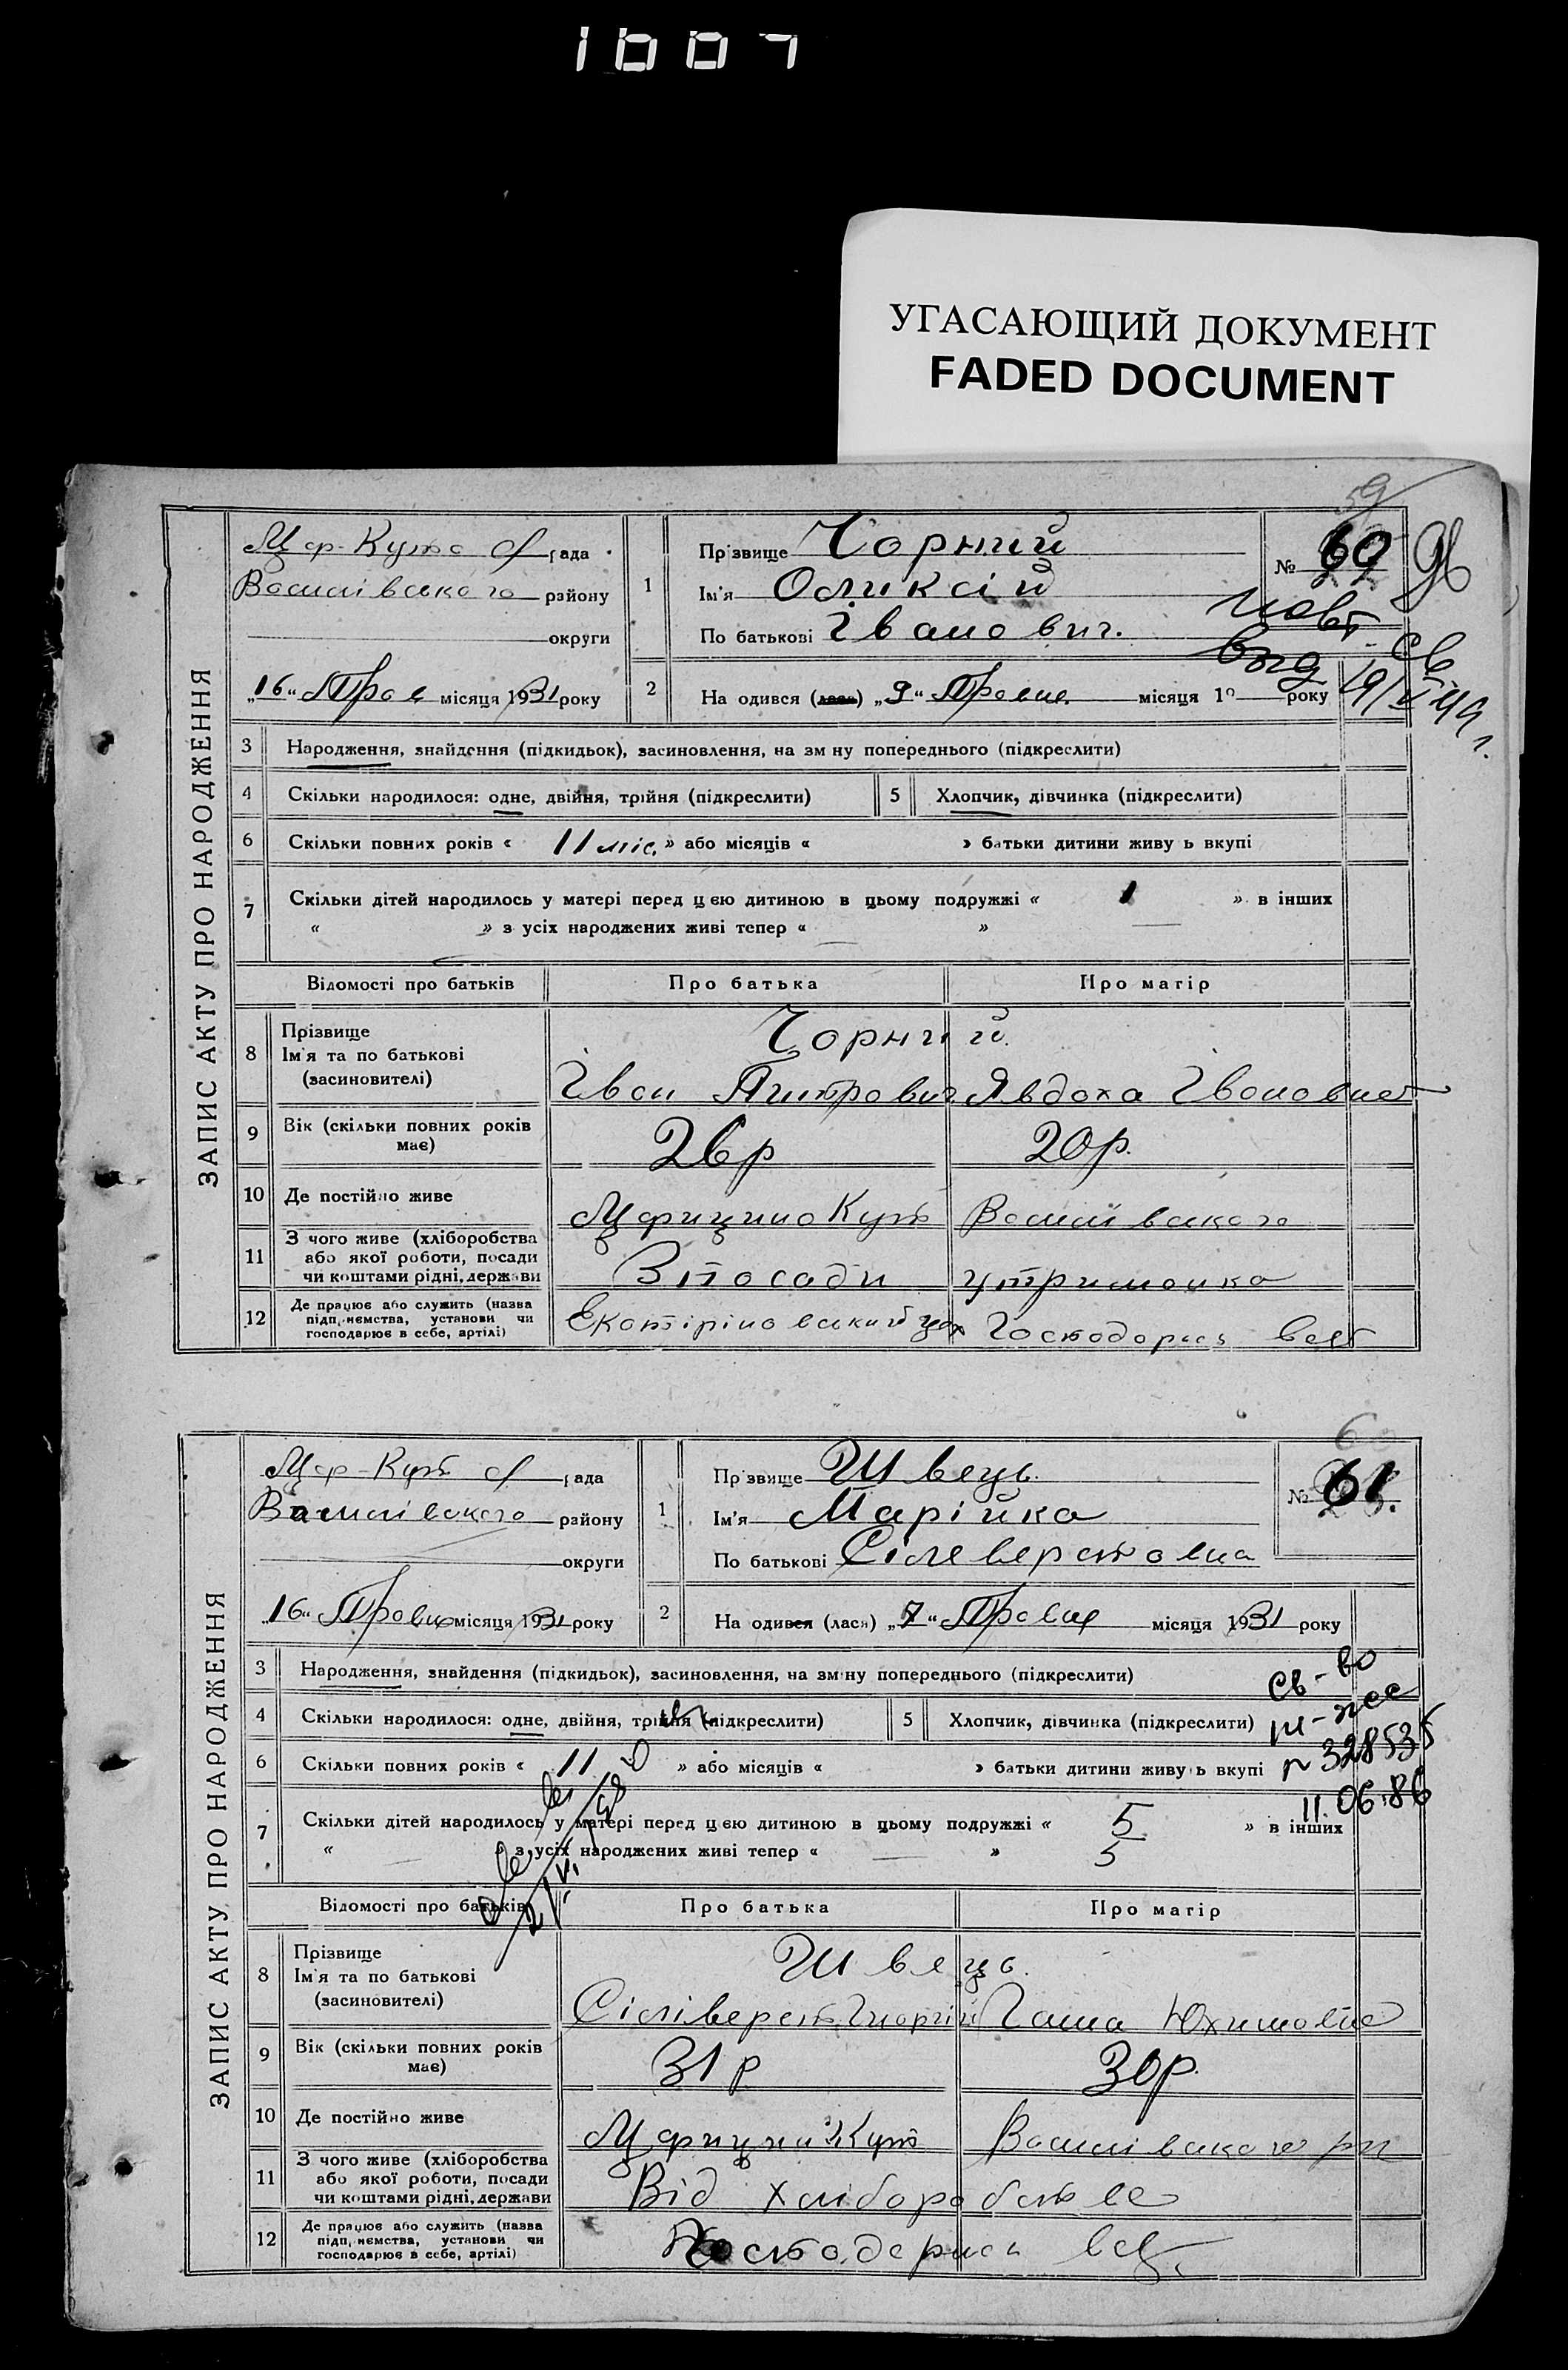 1007
УГАСАЮЩИЙ ДОКУМЕНТ
FADED DOCUMENT
59
ЗАПИС АКТУ ПРО НАРОДЖЕННЯ
Цар-Кута с/рада
Василівського району
округи
„16“ Трав місяця 1931 року
1
Прізвище Чорний
Ім'я Оликсій
По батькові Іванович.
№ 60
2 На одився (лася) „9“ Травня місяця 19 року
3 Народження, знайдення (підкидьок), засиновлення, на зм ну попереднього (підкреслити)
4 Скільки народилося: одне, двійня, трійня (підкреслити)
5 Хлопчик, дівчинка (підкреслити)
6 Скільки повних років « 11 міс. » або місяців « » батьки дитини живу ь вкупі
7 Скільки дітей народилось у матері перед цею дитиною в цьому подружжі « 1 » в інших
« » з усіх народжених живі тепер « »
Відомості про батьків Про батька Про матір
8 Прізвище
Ім'я та по батькові
(засиновителі)
Чорний.
Іван Дмитрович Явдоха Івановна
9 Вік (скільки повних років має) 26р 20р.
10 Де постійно живе Царицино Кут Василівського
11 З чого живе (хліборобства
або якої роботи, посади
чи коштами рідні, держави
З посади утриманка
12 Де працює або служить (назва
підп, иємства, установи чи
господарює в себе, артілі)
Господарці
ЗАПИС АКТУ ПРО НАРОДЖЕННЯ
Цар-Кут с/рада
Василівського району
округи
„16“ Травня місяця 1931 року
1
Прізвище Швець.
Ім'я Марійка
По батькові Сілеверстовна
№ 61.
2 На одився (лася) „7“ Травня місяця 1931 року
3 Народження, знайдення (підкидьок), засиновлення, на зміну попереднього (підкреслити)
4 Скільки народилося: одне, двійня, трійня (підкреслити)
5 Хлопчик, дівчинка (підкреслити)
6 Скільки повних років « 11 » або місяців « » батьки дитини живу ь вкупі
св-во
№ 328535
11.06.86
7 Скільки дітей народилось у матері перед цею дитиною в цьому подружжі « 5 » в інших
« » з усіх народжених живі тепер « » 5
Відомості про батьків Про батька Про матір
8 Прізвище
Ім'я та по батькові
(засиновителі)
Швець.
Сіліверст Гиоргій Юхимовна
9 Вік (скільки повних років має) 31 р 30р.
10 Де постійно живе Царицин Кут Василівського рн
11 З чого живе (хліборобства
або якої роботи, посади
чи коштами рідні, держави
Від хліборобства
12 Де працює або служить (назва
підп, иємства, установи чи
господарює в себе, артілі)